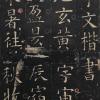 文楷書
玄黃宇宙
盈昃辰宿
暑往秋收